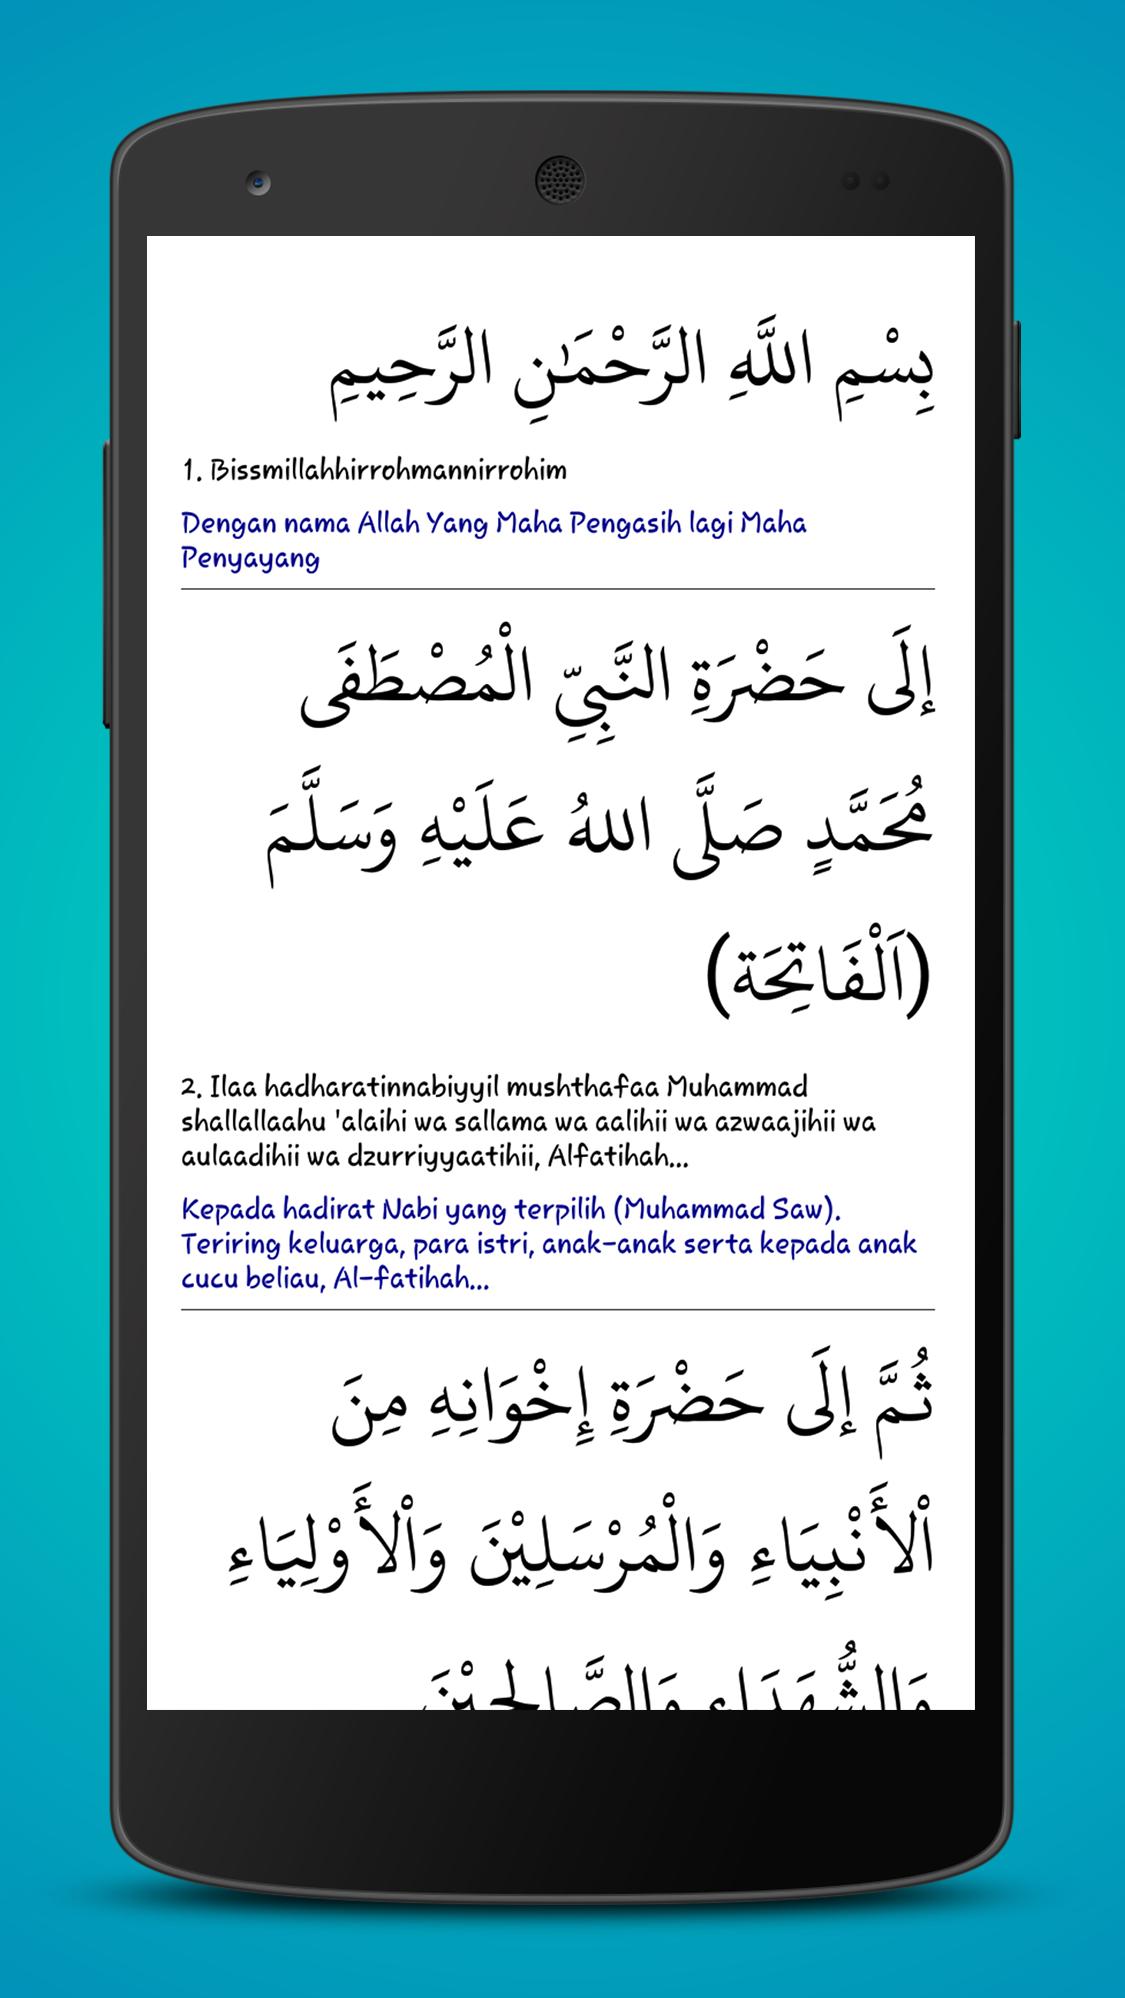 بِسْمِ اللَّهِ الرَّحْمَٰنِ الرَّحِيمِ
1. Bissmillahhirrohmannirrohim
Dengan nama Allah Yang Maha Pengasih lagi Maha
Penyayang
إلَى حَضْرَةِ النَّبِيِّ الْمُصْطَفَى
مُحَمَّدٍ صَلَّى اللهُ عَلَيْهِ وَسَلَّمَ
(اَلْفَاتِحَة)
2. Ilaa hadharatinnabiyyil mushthafaa Muhammad
shallallaahu 'alaihi wa sallama wa aalihii wa azwaajihii wa
aulaadihii wa dzurriyyaatihii, Alfatihah...
Kepada hadirat Nabi yang terpilih (Muhammad Saw).
Teriring keluarga, para istri, anak-anak serta kepada anak
cucu beliau, Al-fatihah...
ثُمَّ إلَى حَضْرَةِ إِخْوَانِهِ مِنَ
اْلأَنْبِيَاءِ وَالْمُرْسَلِيْنَ وَاْلأَوْلِيَاءِ
وَالشُّهَدَاءِ وَالصَّالِحِيْنَ